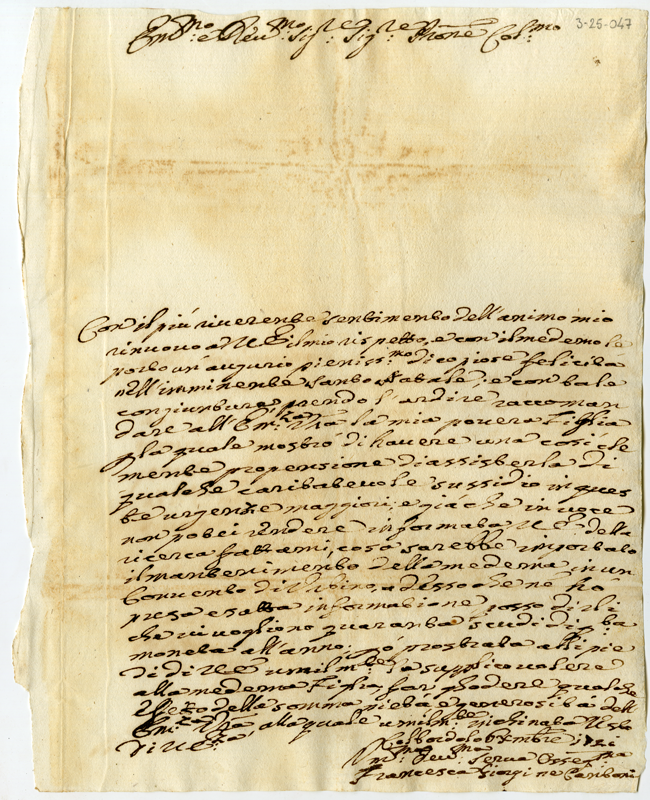 3-25-047
Em:mo e Rev:mo Sig:re Sig:re Prone Col:mo
Con il più riverente sentimento dell'animo mio
rinuovo a V E il mio rispetto, e con il medemo le
porto un'augurio pieniss:mo di copiose felicità
nell'imminente santo Natale; e con tale
conjuntura prendo l'ardire raccoman
dare all'Em:za Vra la mia povera Figlia
p la quale mostrò di havere una così cle
mente propensione di assisterla di
qualche caritatevole sussidio in ques
te urgenze maggiori; e già che in voce
non potei rendere informata V E della
ricerca fattami, cosa sarebbe importato
il mantenimento della medema in un
Convento di Urbino, adesso che ne hò
presa esatta informatione posso dirli
che vi vogliono quaranta scudi di
moneta all'anno; prostrata alli pie
di di V E umilm:te la supplico volere
alla medema Figlia far godere qualche
della somma pietà e generosità dell
Em:za Vra alla quale umilm:te inchinata
di V E:za
Colbordolo Xmbre
Um:ma Dev:ma Serva Osseq:ma
Francesca Giorgi ne